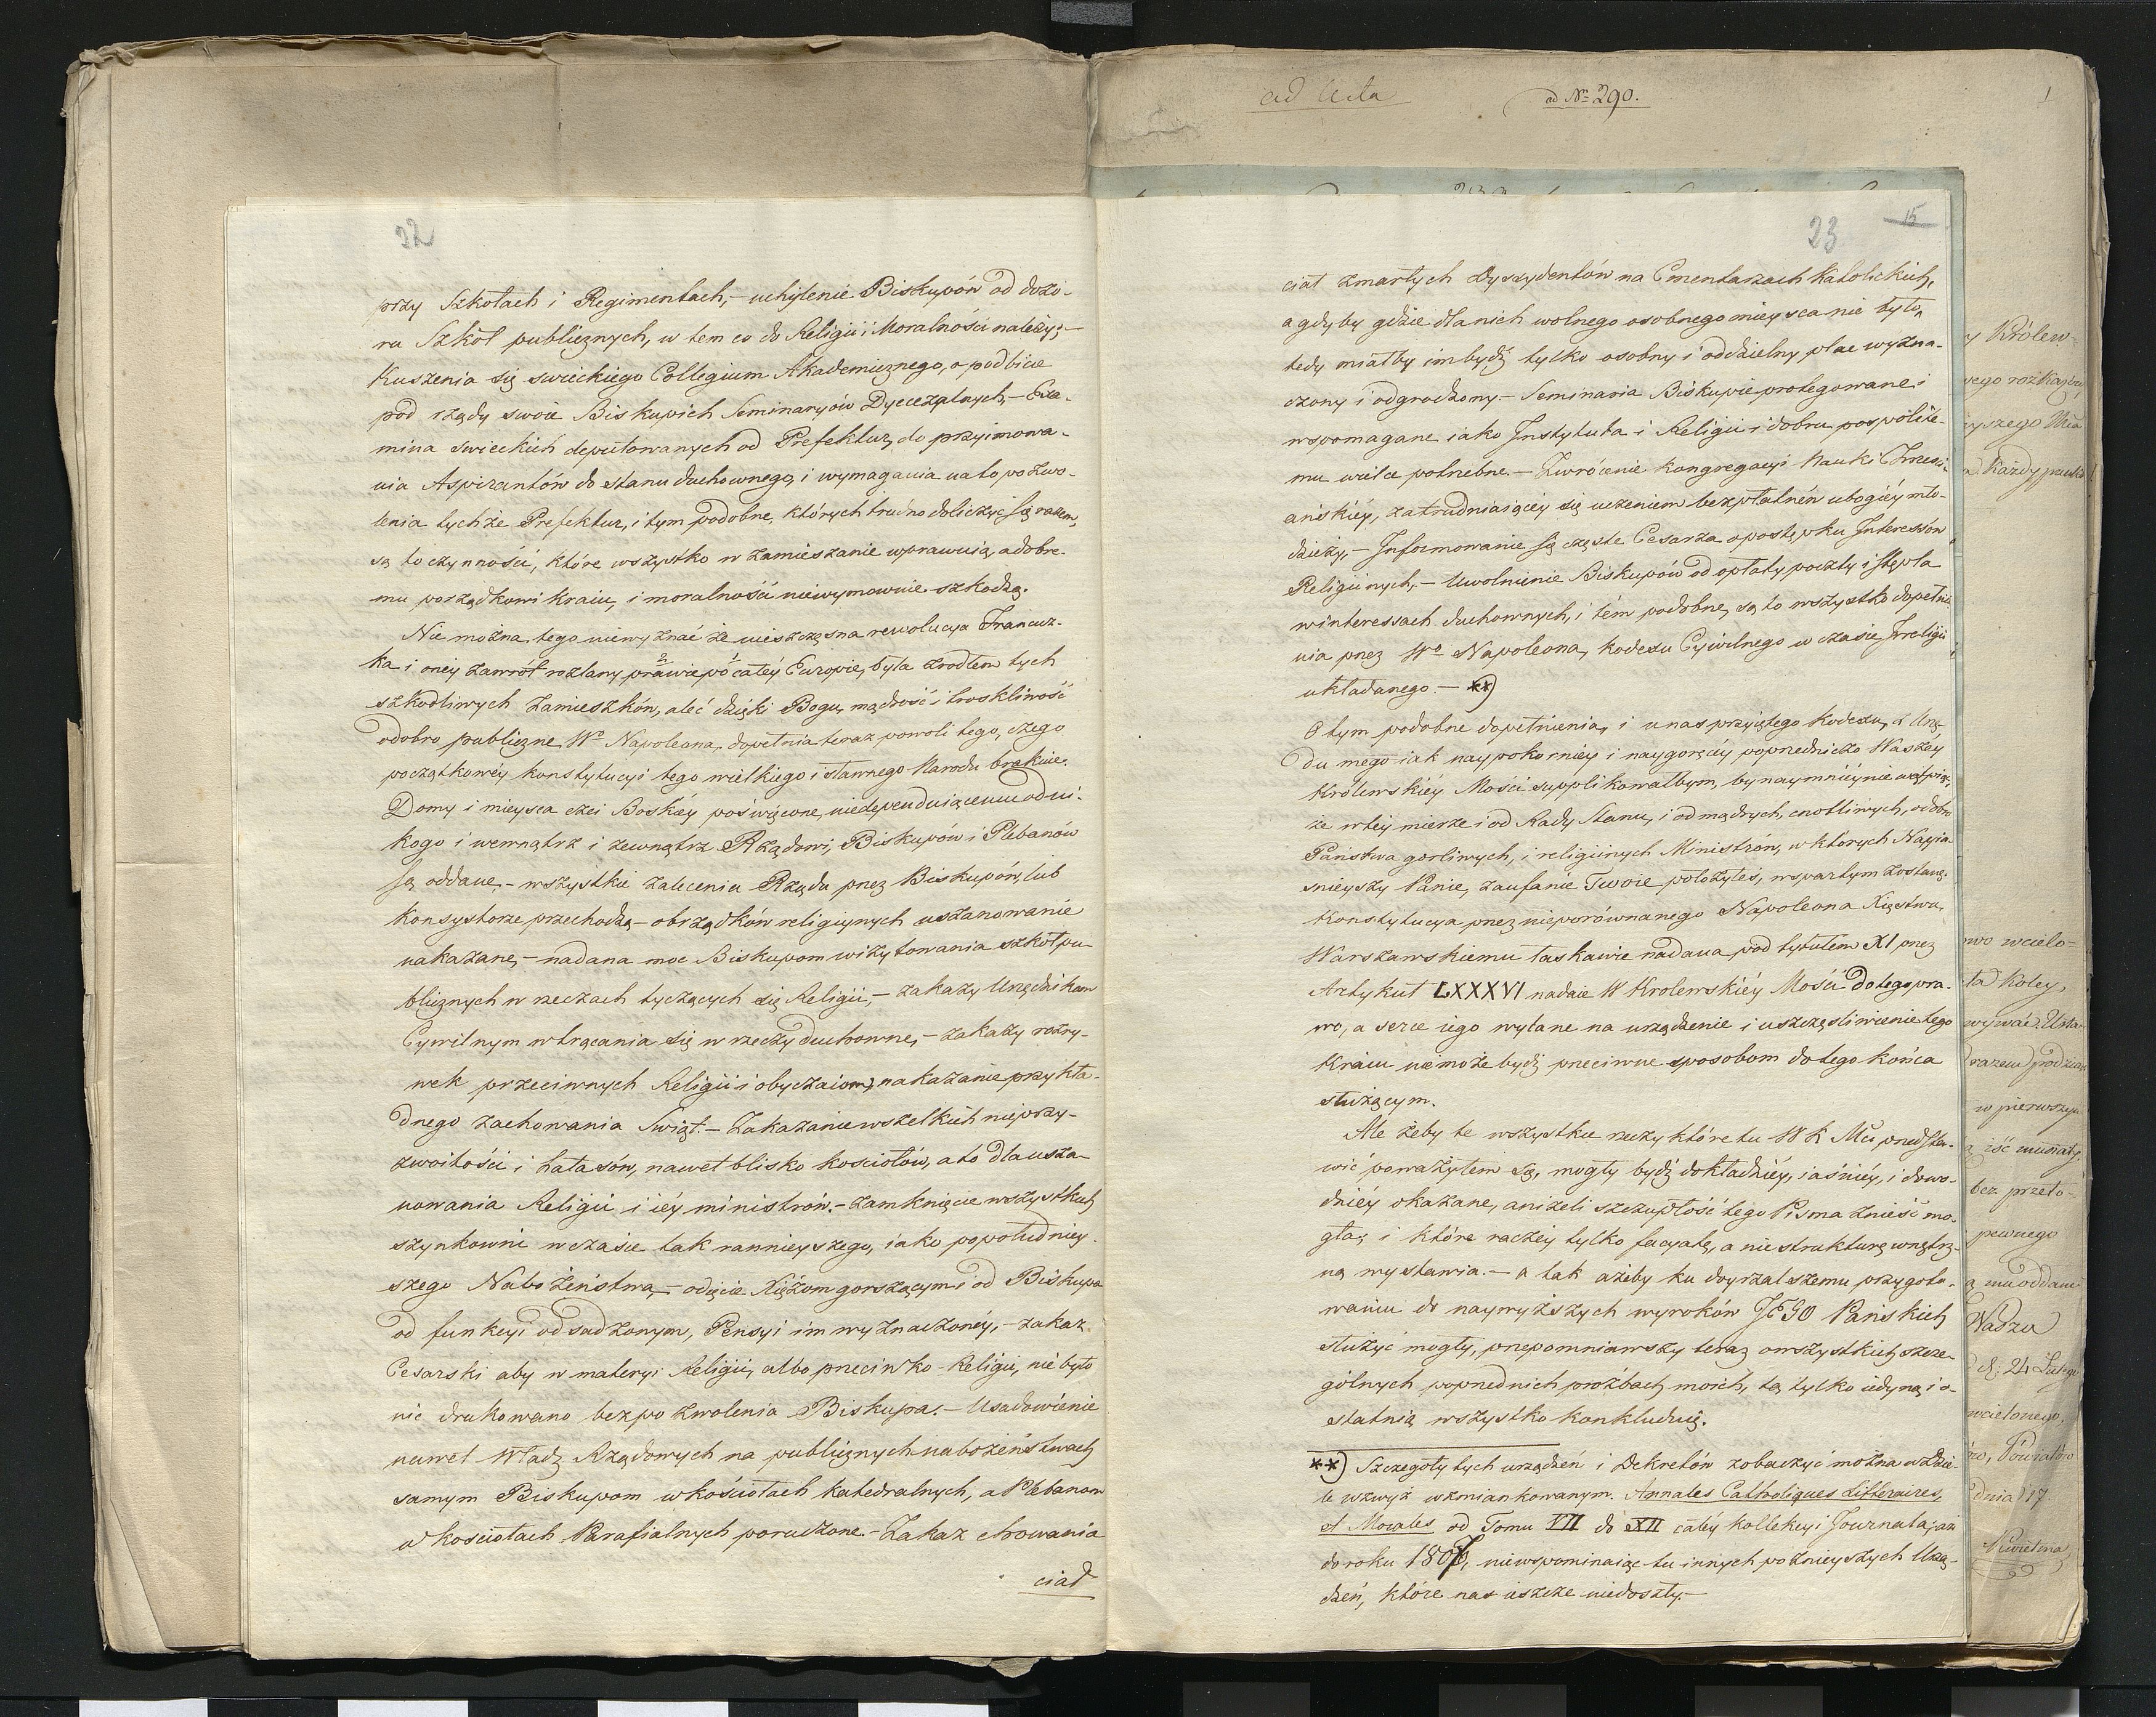 22
przy Szkołach i Regimentach, – uchylenie Biskupów od dozo-
ru Szkół publicznych, w tem co do Religii i Moralności należy; –
Kuszenia się swieckiego Collegium Akademicznego, o podbicie
pod rządy swoie Biskupich Seminaryów Dyecezalnych, – Exa-
mina swieckich deputowanych od Prefektur, do przyimowa-
nia Aspirantów do stanu duchownego, i wymagania na to pozwo-
lenia tychże Prefektur, i tym podobne, których trudno doliczyć się razem,
są to czynności, które wszystko w zamieszanie wprawuią, a dobre-
mu porządkowi kraiu, i moralności niewymownie szkodzą.
Nie można tego niewyznać że nieszczęsna rewolucya Francuz-
ka i oney zawrót rozlany prawie po całéy Europie, była zrodłem tych
szkodliwych zamieszków, aleć dzięki Bogu, mądrość i troskliwość
o dobro publiczne Wo Napoleona, dopełnia teraz powoli tego, czego
początkowéy konstytucyi tego wielkiego i sławnego Narodu brakuie.
Domy i mieysca czci Boskiéy poświęcone, niedependuiącemu od ni-
kogo i wewnątrz i zewnątrz Rządowi, Biskupów i Plebanów
są oddane, – wszystkie zalecenia Rządu przez Biskupów, lub
Konsystorze przechodzą – obrządków religiynych uszanowanie
nakazane, – nadana moc Biskupom wizytowania szkół pu-
blicznych w rzeczach tyczących się Religii, – zakazy Urzędnikom
Cywilnym wtrącania się w rzeczy duchowne, – zakazy rozry-
wek przeciwnych Religii i obyczaiom, nakazanie przykła-
dnego zachowania Swiąt. – Zakazanie wszelkich nieprzy-
zwoitości i hałasów, nawet blisko kosciołów, a to dla usza-
nowania Religii i iéy ministrów. – zamknięcie wszystkich
szynkowni w czasie tak rannieyszego, iako popołudniey-
szego Nabożeństwa, – odięcie Xiężom gorszącym i od Biskupa
od funkcyi odsadzonym, Pensyi im wyznaczonéy, – zakaz
Cesarski aby w materyi Religii, albo przeciwko Religii, nie było
nic drukowano bez pozwolenia Biskupa. – Usadowienie
nawet Władz Rządowych na publicznych nabożeństwach
samym Biskupom w kościołach katedralnych, a Plebanom
w kosciołach Parafialnych poruczone. – Zakaz chowania
ciał
ad Acta
ad No 290.
1
23
15
ciał zmarłych Dyssydentów na Cmentarzach Katolickich,
a gdyby gdzie dla nich wolnego osobnego mieysca nie było,
tedy miałby im bydź tylko osobny i oddzielny plac wyzna-
czony i odgrodzony – Seminaria Biskupie protegowane i
wspomagane iako Instytuta i Religii i dobru pospolite-
mu wielce potrzebne. – Zwrócenie kongregacyi Nauki Chrześci-
ańskiéy, zatrudniaiącéy się uczeniem bezpłatném ubogiéy mło-
dzieży, – Informowanie się częste Cesarza o postępku Interessów
Religiinych, – Uwolnienie Biskupów od opłaty poczty i stępla
w interessach duchownych, i tém podobne, są to wszystko dopełnie-
nia przez Wo Napoleona, kodexu Cywilnego w czasie Irreligii
układanego. – **)
O tym podobne dopełnienia, i u nas przyiętego kodexu, z Urzę-
du mego iak naypokorniéy i naygoręcéy poprzedniczo Waszéy
Królewskiéy Mości supplikowałbym, by naymniéy nie wątpiąc,
że w téy mierze i od Rady Stanu, i od mądrych, cnotliwych, o dobro
Państwa gorliwych, i religiinych Ministrów, w których Nayia-
snieyszy Panie, zaufanie Twoie położyłeś, wspartym zostanę.
Konstytucya przez nieporównanego Napoleona Xięstwu
Warszawskiemu łaskawie nadana pod tytułem XI przez
Artykuł LXXXVI nadaie W Krolewskiéy Mości do tego pra-
wo, a serce iego wylane na urządzenie i uszczęśliwienie tego
Kraiu nie może bydź przeciwne sposobom do tego końca
służącym.
Ale żeby te wszystkie rzeczy które tu W K Mci przedsta-
wić poważyłem się, mogły bydź dokładniéy, iaśniéy, i dowo-
dniéy okazane, aniżeli szczupłość tego Pisma znieść mo-
gła, i które raczéy tylko facyatę, a nie strukturę wnętrz-
ną wystawia. – a tak ażeby ku doyrzalszemu przygoto-
waniu do naywyższych wyroków JEGO Pańskich
służyć mogły, przepomniawszy teraz o wszystkich szcze-
gólnych poprzednich prośbach moich, tą tylko iedyną i o-
statnią wszystko konkluduię.
**) Szczegóły tych urządzeń i Dekretów zobaczyć można w Dzie-
le wzwyż wzmiankowanym. Annales Catholiques Littéraires,
et Morales od Tomu VII do XII całéy kollekcyi Journala, aż
do roku 1807, niewspominaiąc tu innych poźnieyszych Urzą-
dzeń, które nas ieszcze niedoszły. –
y Królew-
wego rozkazu,
yszego
Każdy
wo wcielo=
ta) Koley,
wywać. Usta-
razem
w pierwszym
iść musiały.
bez przeto-
pewnego
mu oddane
Wadzu
d: 24 Lutego
wcielonego,
ów, Powiatów
dnia 17
Kwietnia